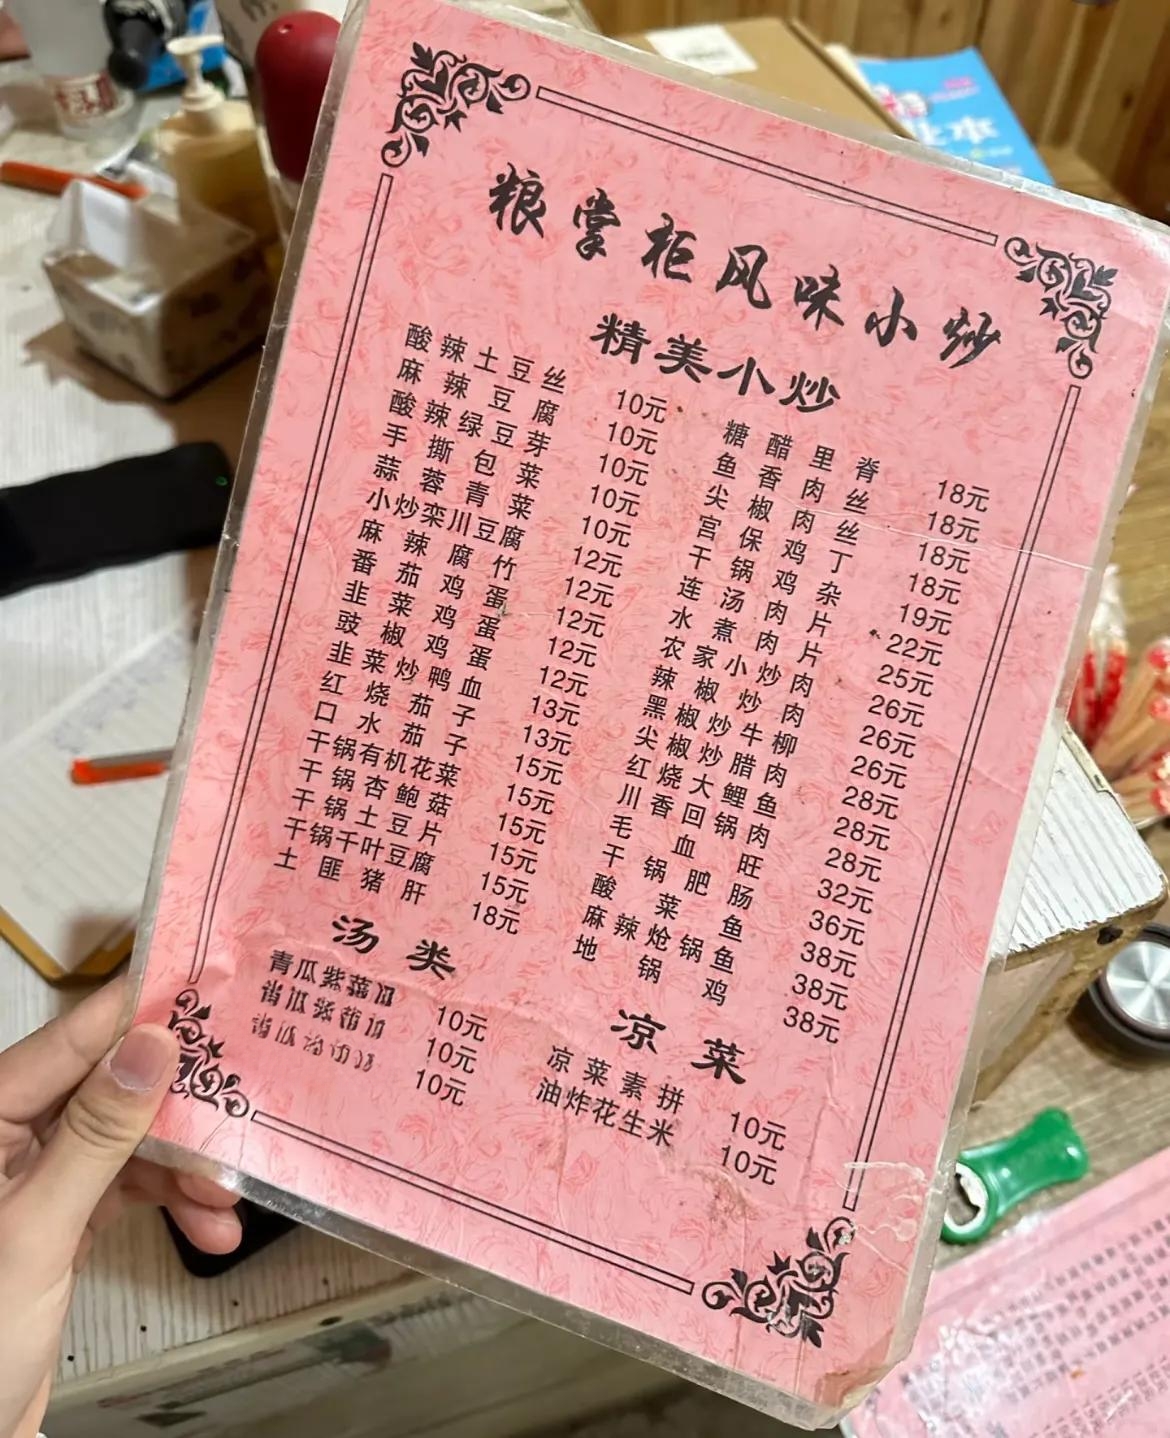 粮掌柜风味小炒
精美小炒
酸辣土豆丝 10元
麻辣豆腐 10元
酸辣绿豆芽 10元
手撕包菜 10元
蒜蓉青菜 10元
小炒栾川豆腐 12元
麻辣腐竹 12元
番茄鸡蛋 12元
韭菜鸡蛋 12元
豉椒鸡蛋 12元
韭菜炒鸭血 13元
红烧茄子 13元
口水茄子 15元
干锅有机花菜 15元
干锅杏鲍菇 15元
干锅土豆片 15元
干锅千叶豆腐 15元
土匪猪肝 18元
汤类
10元
10元
10元
糖醋里脊 18元
鱼香肉丝 18元
尖椒肉丝 18元
宫保鸡丁 18元
干锅鸡杂 19元
连汤肉片 22元
水煮肉片 25元
农家小炒肉 26元
辣椒炒肉 26元
黑椒牛柳 26元
尖椒炒腊肉 28元
红烧大鲤鱼 28元
川香回锅肉 28元
毛血旺 32元
干锅肥肠 36元
酸菜鱼 38元
麻辣炝锅鱼 38元
地锅鸡 38元
凉菜
凉菜素拼 10元
油炸花生米 10元